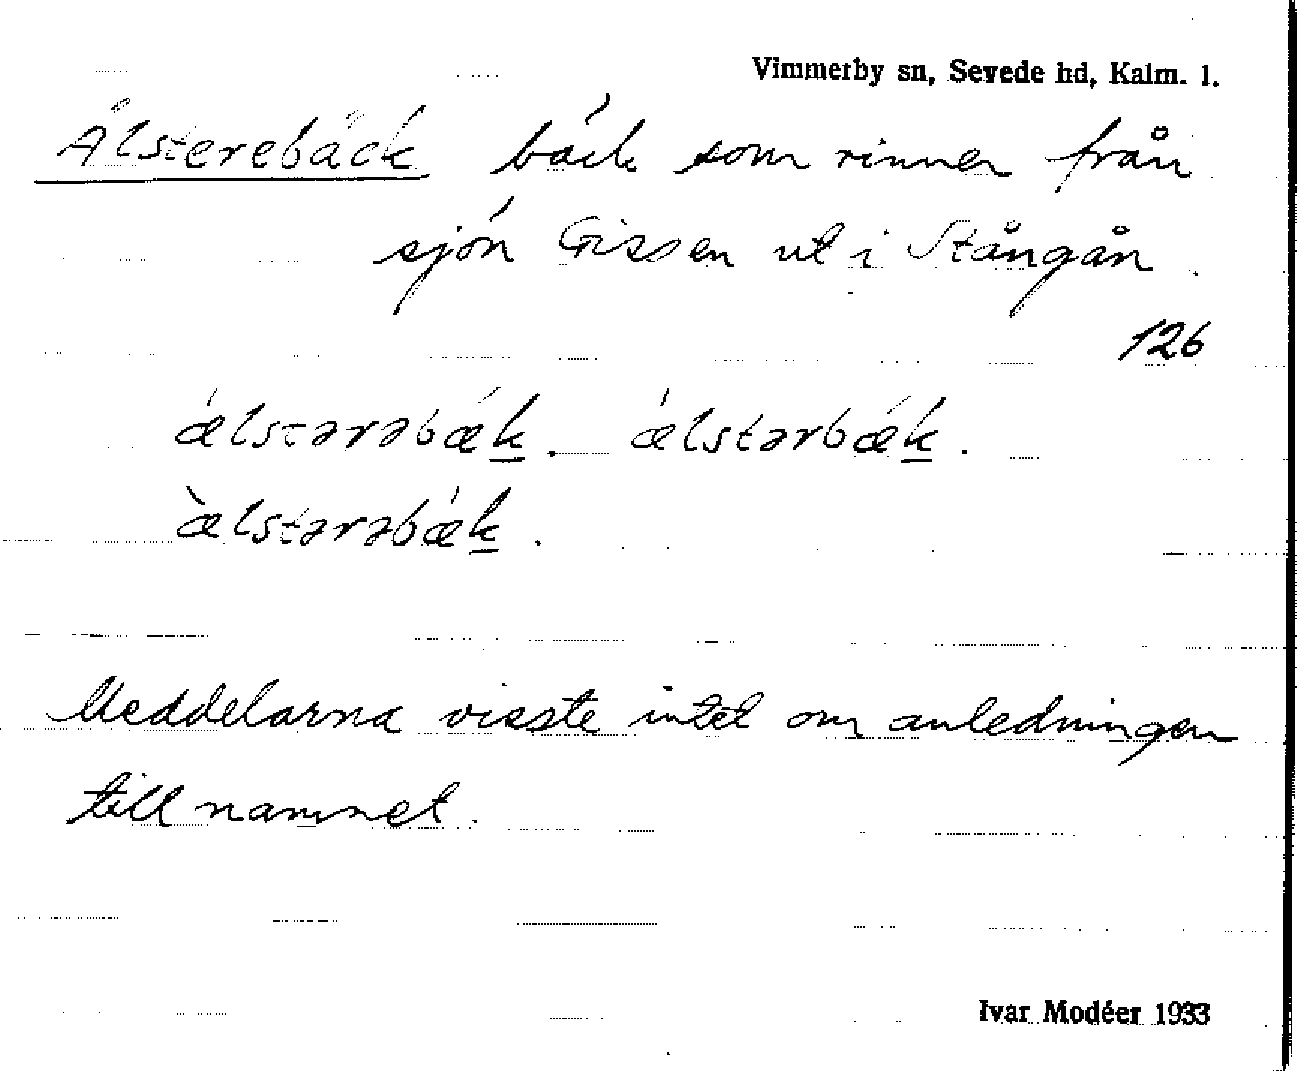 Vimmerby sn, Sevede hd, Kalm. l.
Älsterebäck bäck som rinner från
sjön Gissen ut i Stångån.
126
ǽlstərəbæ̀k̲. ǽlstərbæ̀k̲.
æ̀lstərəbǽk̲.
Meddelarna visste intet om anledningen
till namnet.
Ivar Modéer 1933